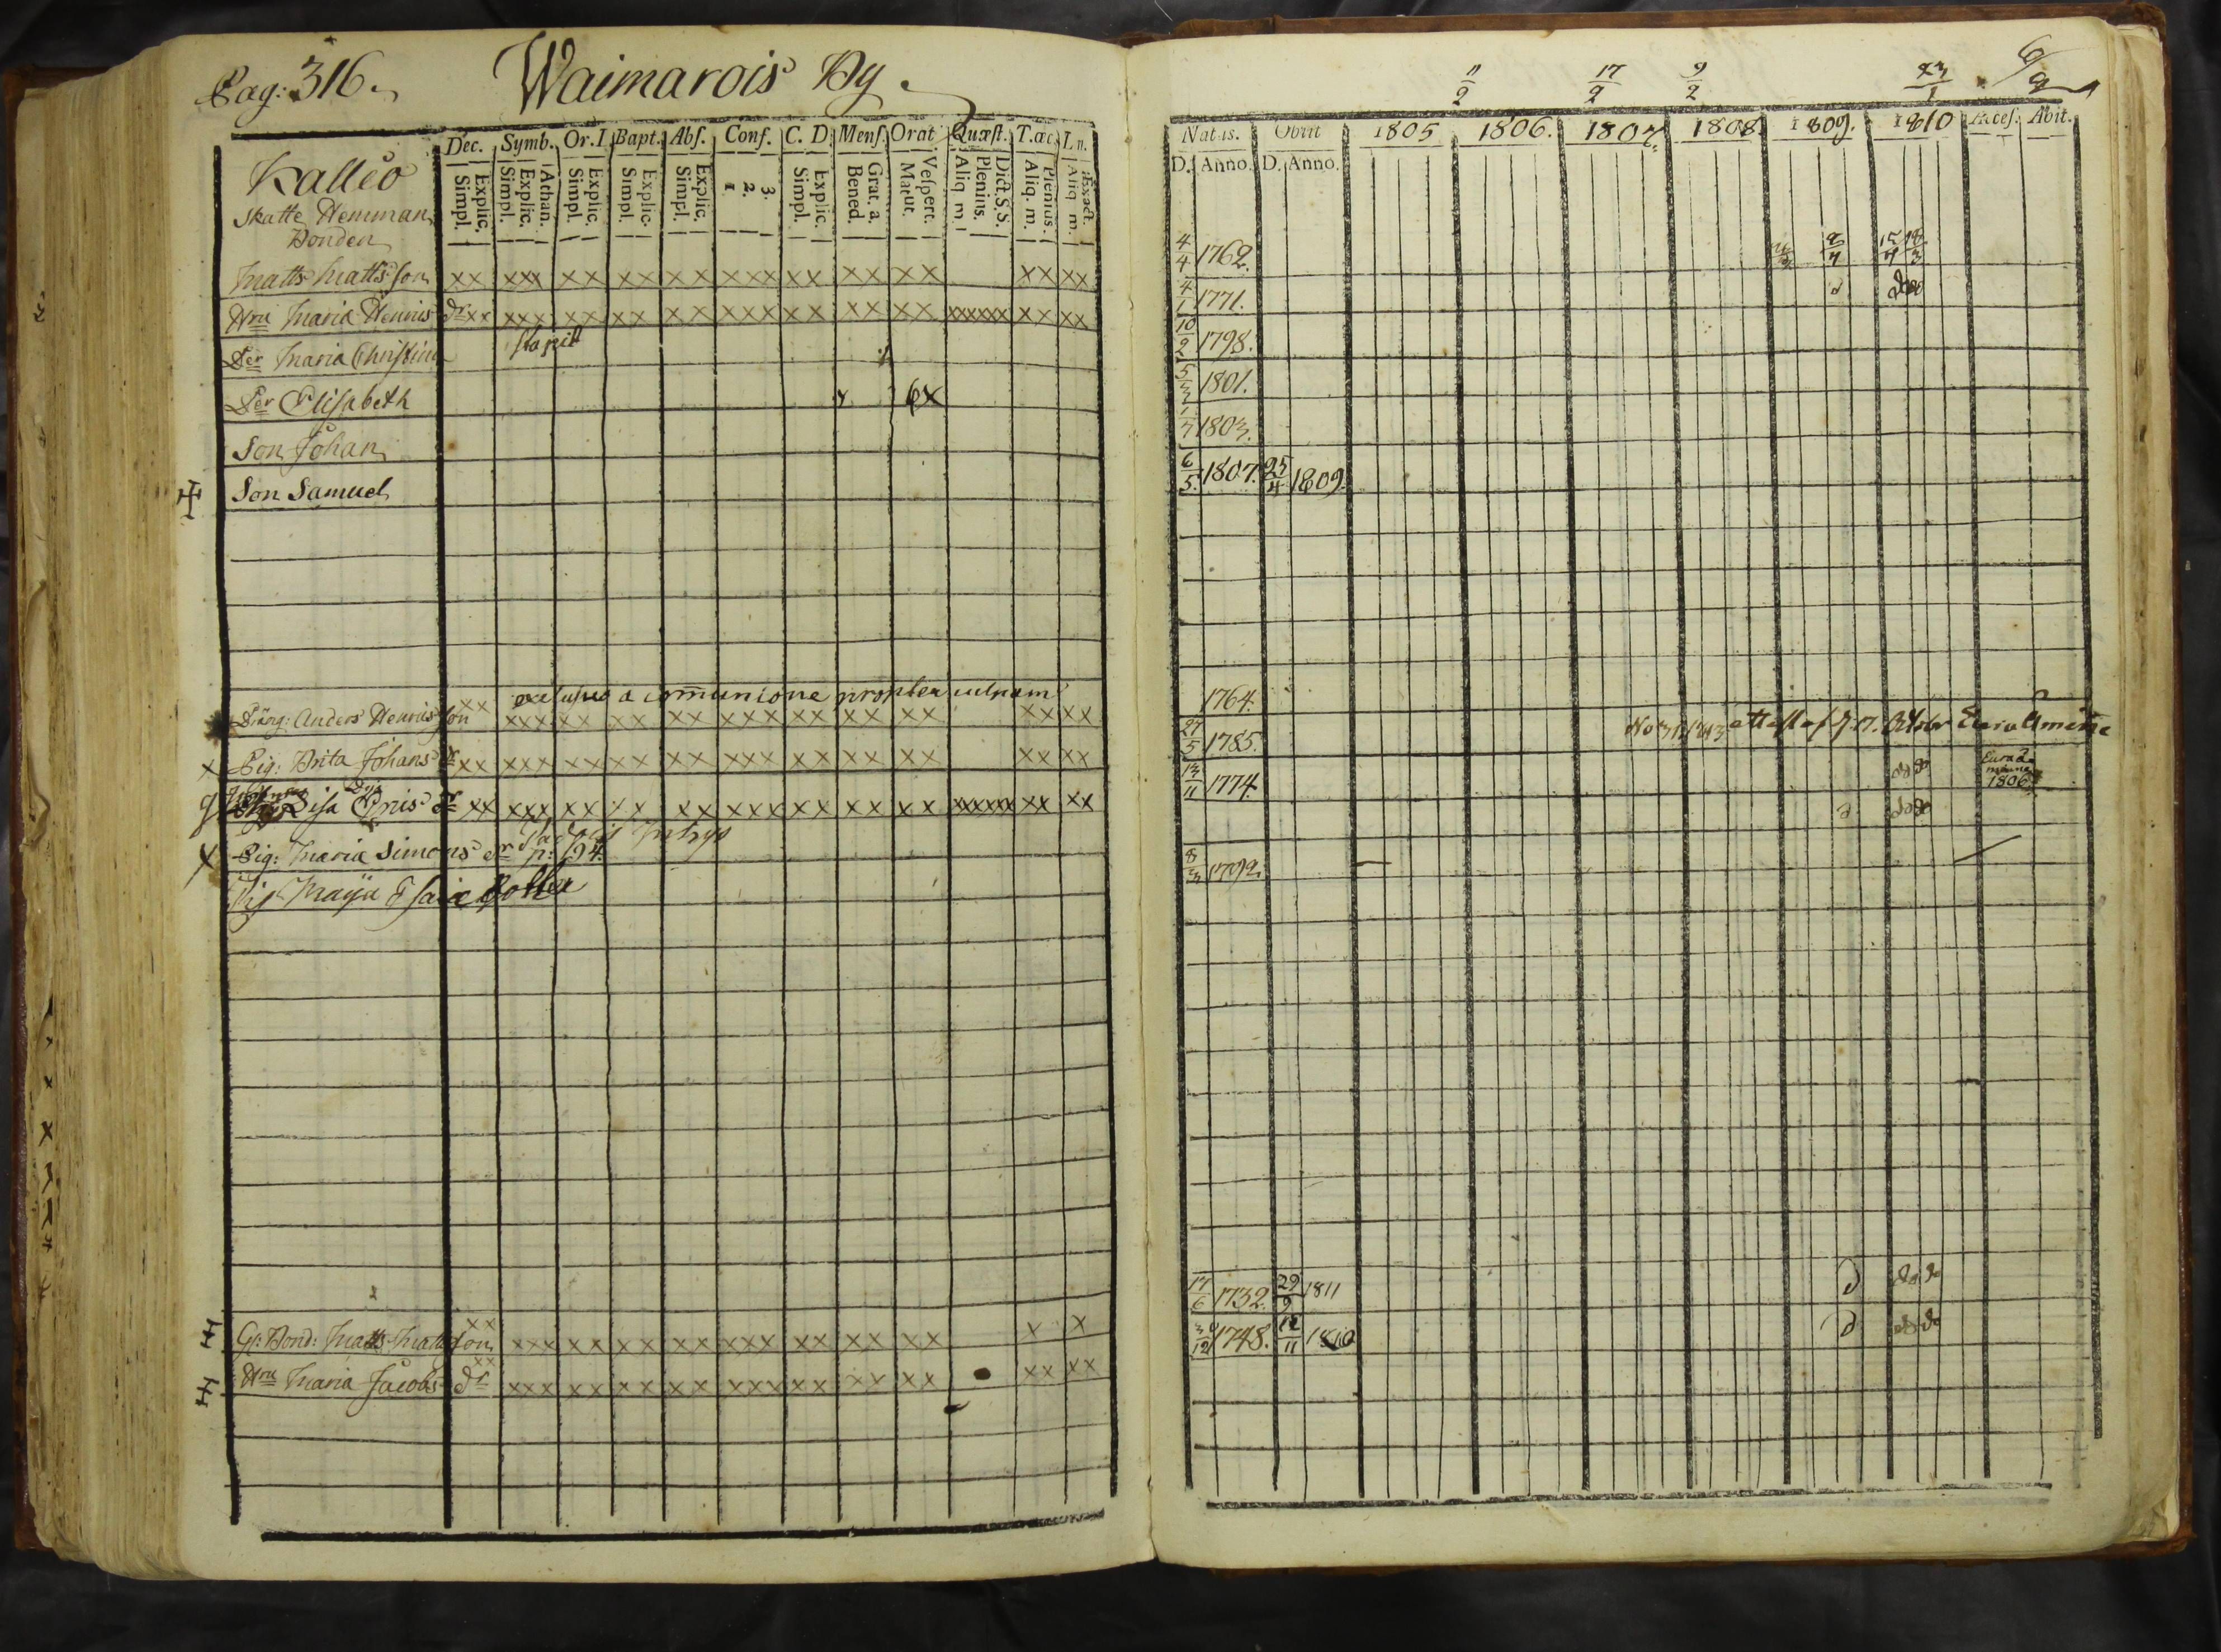 Pag: 316. Waimarois By.
Dec. Symb. Or. D. Bapt. Abs. Conf. C. D. Mens. Orat. Quæst. T. œc. Ln.
Explic. Simpl. Athan. Explic. Simpl. Explic. Simpl. Explic. Simpl. Explic. Simpl. 3. 2. 1. Explic. Simpl. Grat. a. Bened. Vespert. Matut. Dict. S.S. Plenius. Aliq. m. Plenius. Aliq. m. Exact. Aliq. m.
Kalleo
Skatte Hemman
Bonden
Matts Matts son xx xxx xx xx xx xxx xx xx xx xx xx
Hru Maria Henrics dr xx xxx xx xx xx xxx xx xx xx xxxxxx xx xx
Der Maria Christina
Der Elisabeth
Son Johan
Son Samuel
exclusus a communione propter culpam
Dräng: Anders Henrics son xx xxx xx xx xx xxx xx xx xx xx xx
Pig: Brita Johans dr xx xxx xx xx xx xxx xx xx xx xx xx
Lisa dr xx xxx xx xx xx xxx xx xx xx xxxxxx xx xx
Pig: Maria Simons dr p: 194.
Pig Maija Esaiæ dotter
Gl: Bond: Matts Matts son xx xxx xx xx xx xxx xx xx xx x x
Hru Maria Jacobs dr xx xxx xx xx xx xxx xx xx xx xx xx
11/2 17/2 9/2 23/1
Natus. Obiit 1805 1806. 1807. 1808. 1809. 1810 Acces. Abit.
D. Anno. D. Anno.
4/4 1762.
4/1 1771.
10/2 1798.
5/3 1801.
1/7 1803.
6/5 1807. 25/4 1809.
1764.
27/5 1785.
13/11 1774. 1806
8/3 1792.
17/6 1732. 29/9 1811
30/12 1748. 12/11 1810